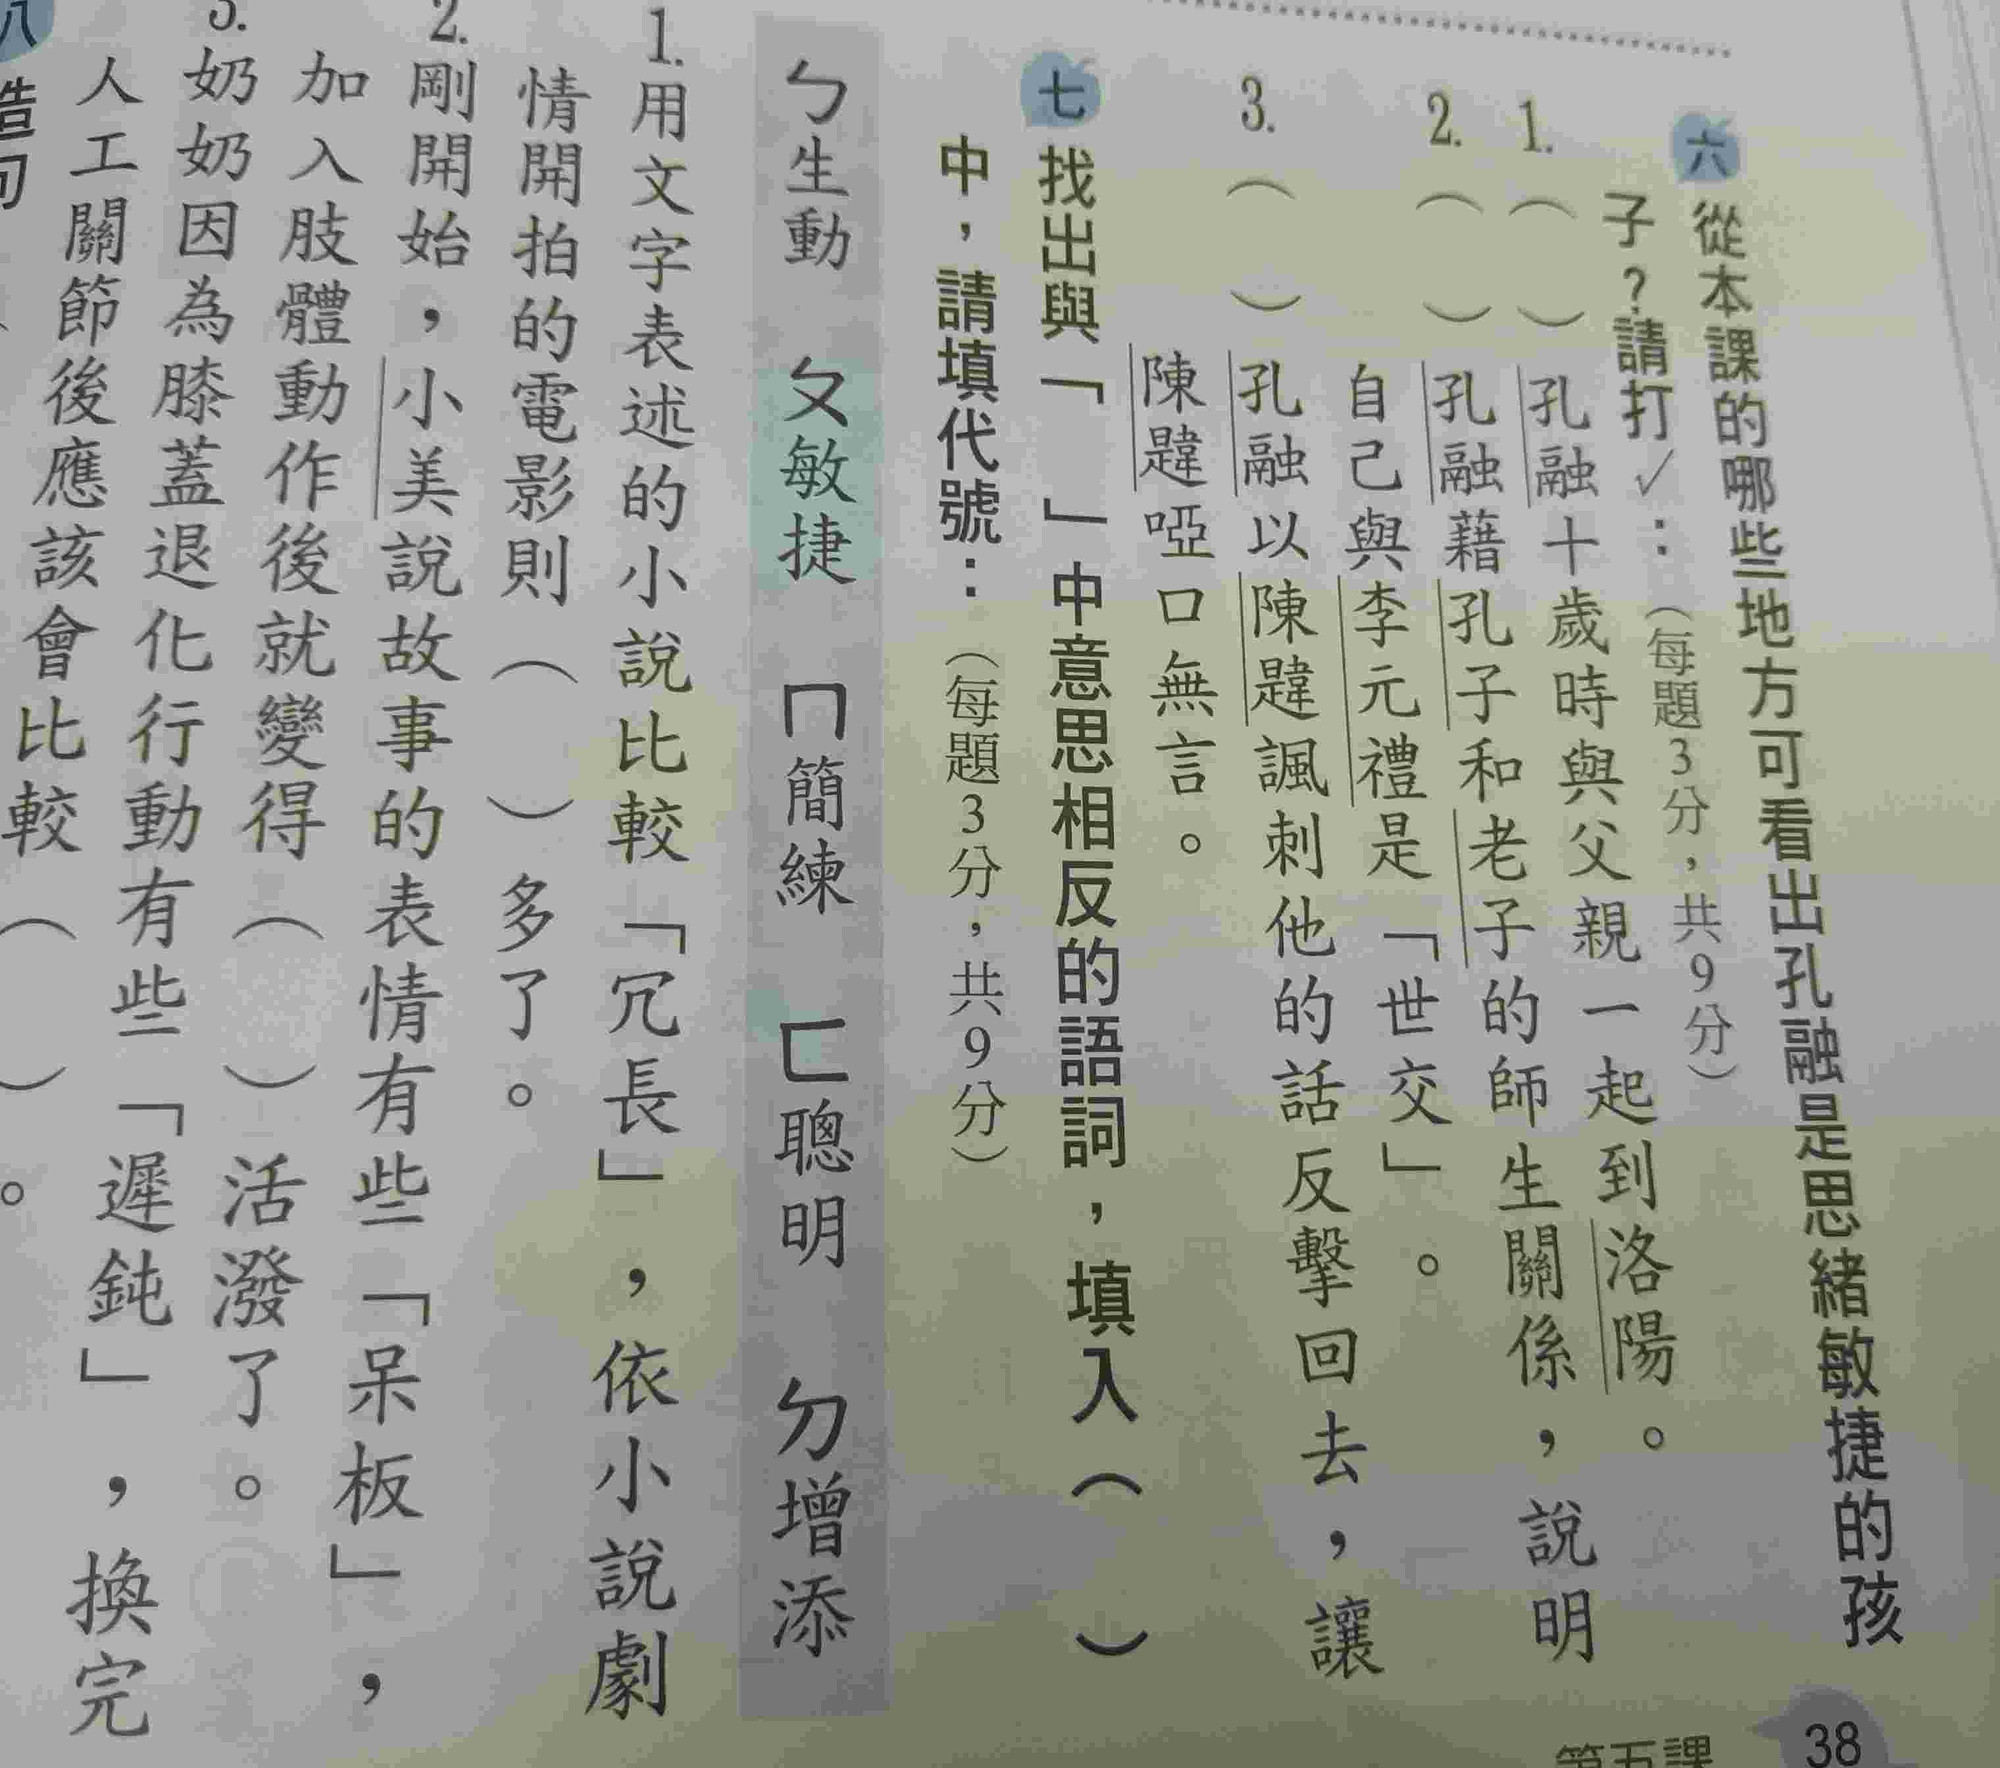 六 從本課的哪些地方可看出孔融是思緒敏捷的孩
子？請打✓：（每題3分，共9分）
1.（　）孔融十歲時與父親一起到洛陽。
2.（　）孔融藉孔子和老子的師生關係，說明
自己與李元禮是「世交」。
3.（　）孔融以陳韙諷刺他的話反擊回去，讓
陳韙啞口無言。
七 找出與「　」中意思相反的語詞，填入（　）
中，請填代號：（每題3分，共9分）
ㄅ生動　ㄆ敏捷　ㄇ簡練　ㄈ聰明　ㄉ增添
1.用文字表述的小說比較「冗長」，依小說劇
情開拍的電影則（　）多了。
2.剛開始，小美說故事的表情有些「呆板」，
加入肢體動作後就變得（　）活潑了。
3.奶奶因為膝蓋退化行動有些「遲鈍」，換完
人工關節後應該會比較（　）。
八 造句
第五課
38